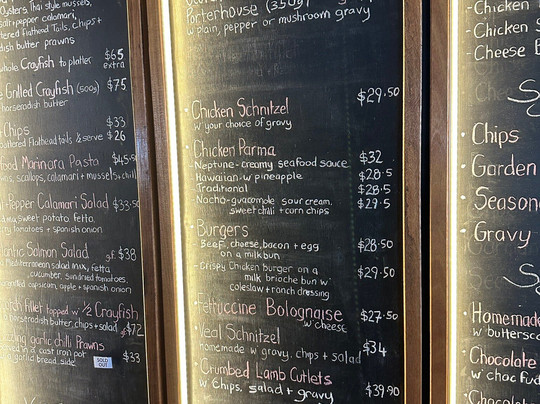 Oysters, Thai style mussels,
salt+pepper calamari,
battered Flathead Tails, chips+
dish butter prawns
whole Crayfish to platter $65
extra
Grilled Crayfish (500g) $75
horseradish butter
$33
Chips
battered flathead tails & serve $26
food Marinara Pasta $45.50
scallops, calamari + mussels + chilli
+Pepper Calamari Salad $33.50
sweet potato, fetta,
tomatoes + spanish onion
Atlantic Salmon Salad g.f. $38
Mediterranean salad mix, fetta,
cucumber, sundried tomatoes,
grilled capsicum, apple + spanish onion
fillet topped w ½ Crayfish
horseradish butter, chips + salad $72
garlic chilli Prawns
in a cast iron pot $33
garlic bread side
SOLD
OUT
Porterhouse (350g)
w plain, pepper or mushroom gravy
$29.50
• Chicken Schnitzel
w your choice of gravy
• Chicken Parma
Neptune - creamy seafood sauce $32
Hawaiian w pineapple $28.5
Traditional $28.5
Nacho - guacamole sour cream, $29.5
sweet chilli + corn chips
• Burgers
Beef, cheese, bacon + egg $28.50
on a milk bun
- Crispy Chicken burger on a $29.50
milk brioche bun w
coleslaw + ranch dressing
Fettuccine Bolognaise $27.50
w cheese
• Veal Schnitzel
homemade w gravy, chips + salad $34
Crumbed Lamb Cutlets
w chips, salad + gravy $39.90
- Chicken
- Chicken
- Cheese
• Chips
• Garden
• Season
• Gravy
• Homemade
w buttersc
• Chocolate
w choc fud
• Chocolate